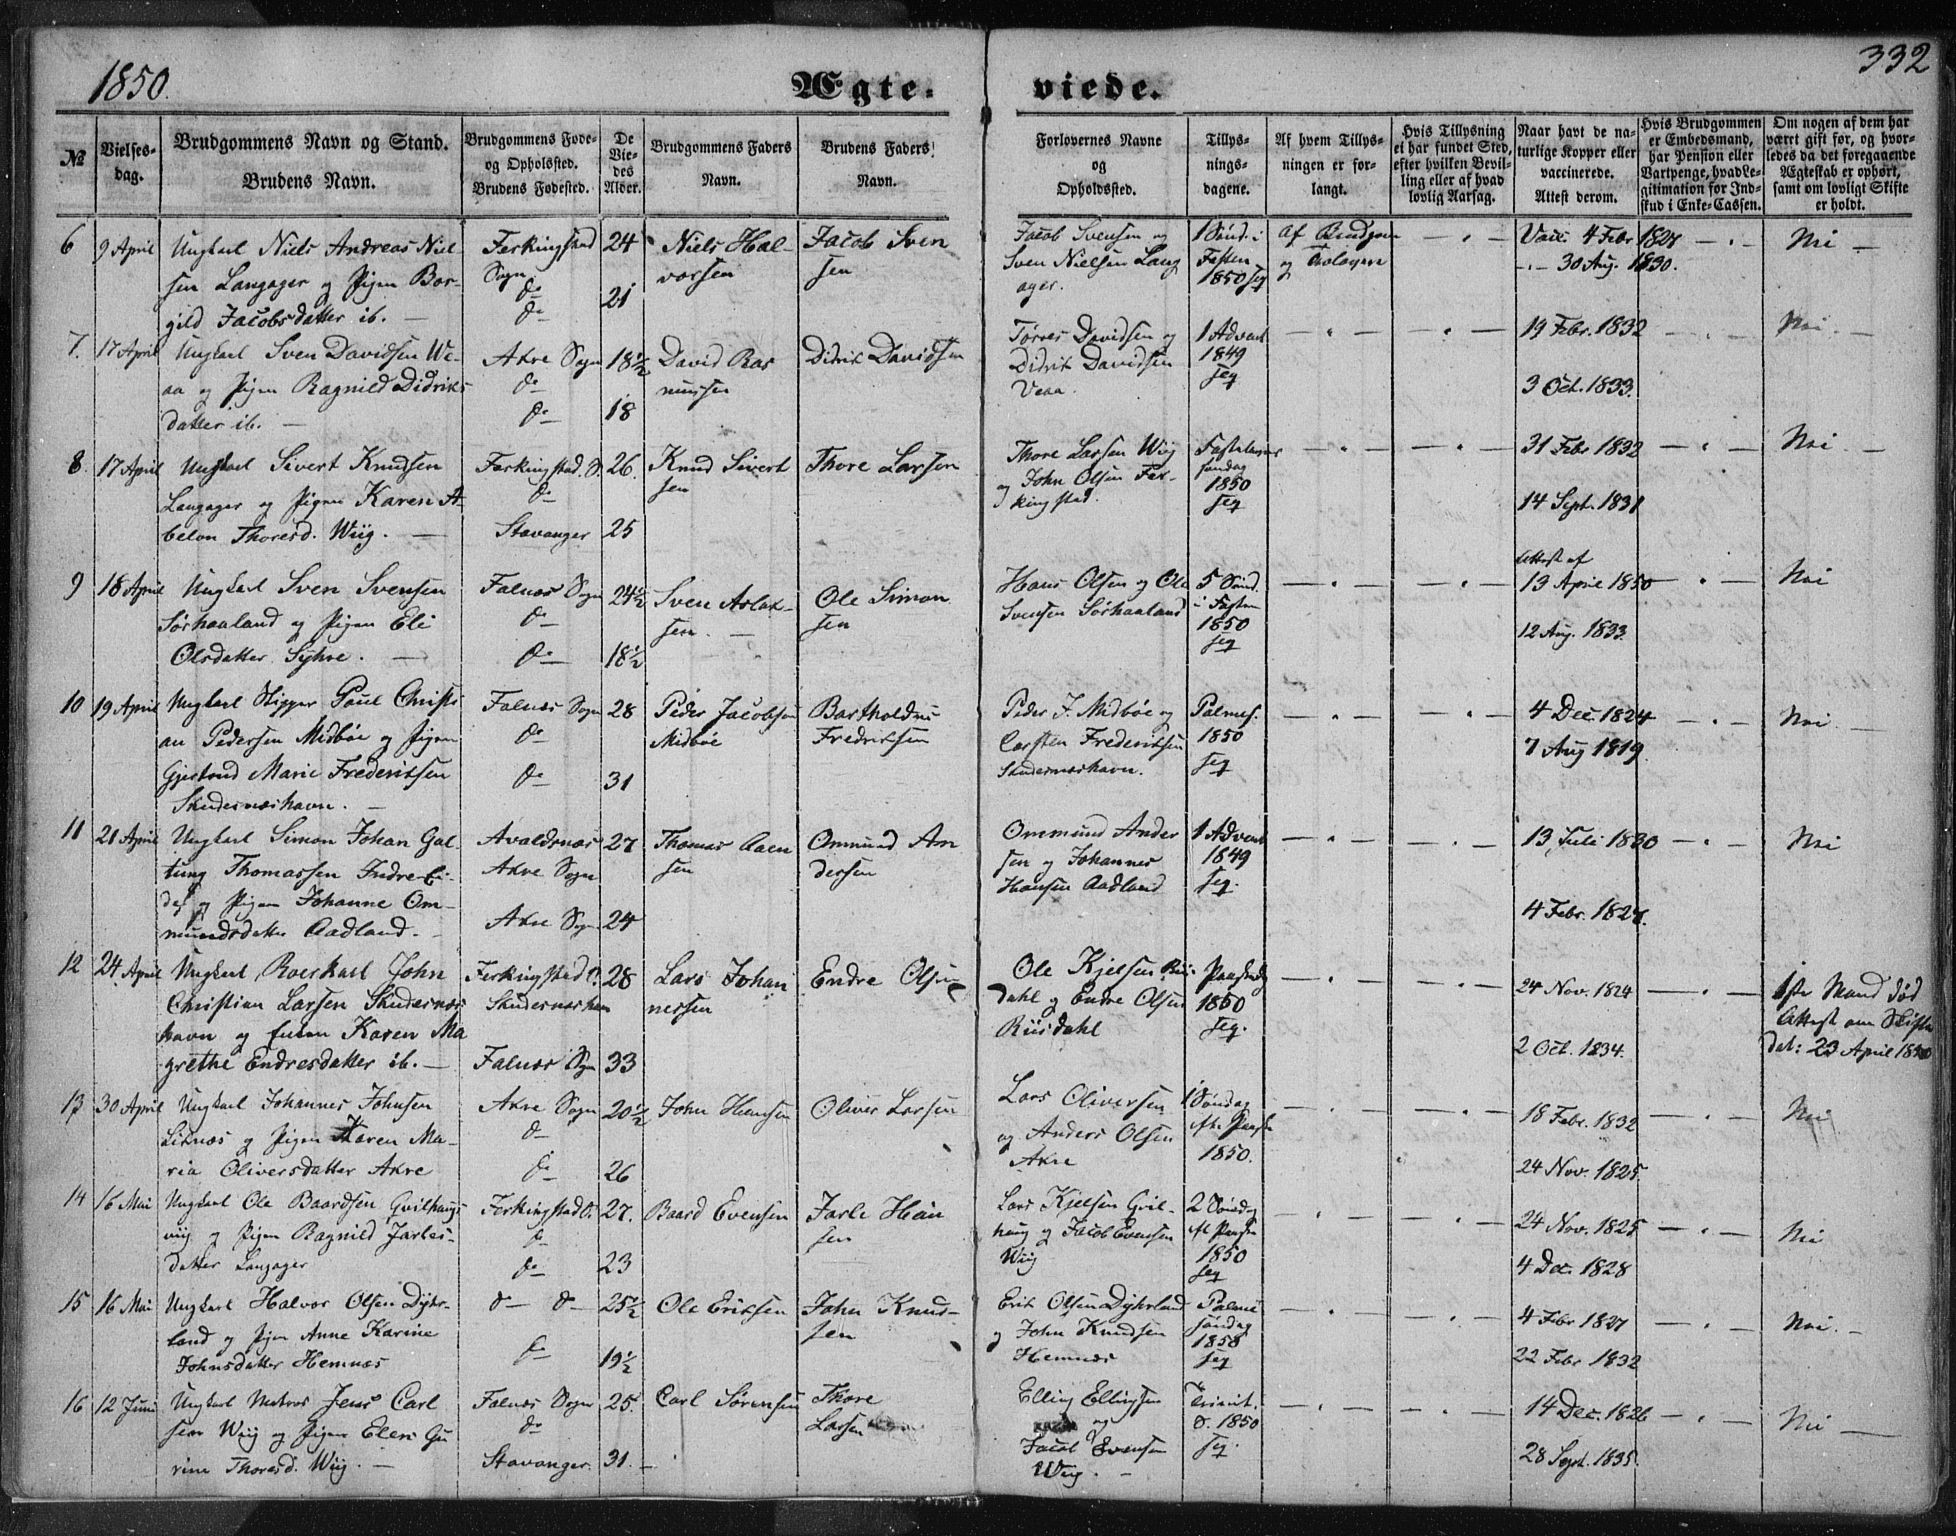 1850.
Ægte-
viede.
332
№
Vielses-
dag.
Brudgommens Navn og Stand.
Brudens Navn.
Brudgommens Føde-
og Opholssted.
Brudens Fødested.
De
Vie-
des
Alder.
Brudgommens Faders
Navn.
Brudens Faders
Navn.
Forlovernes Navne
og
Opholdssted.
Tillys-
nings-
dagene.
Af hvem Tillys-
ningen er for-
langt.
Hvis Tillysning
ei har fundet Sted,
efter hvilken Bevil-
ling eller af hvad
lovlig Aarsag.
Naar havt de na-
turlige Kopper eller
vaccinerede.
Attest derom.
Hvis Brudgommen
er Embedsmand,
har Pension eller
Vartpenge, hvad Le-
gitimation for Ind-
skud i Enke-Cassen.
Om nogen af dem har
været gift før, og hvor-
ledes da det foregaaende
Ægteskab er ophørt,
samt om lovligt Skifte
er holdt.
6
9 April
Ungkarl Niels Andreas Niel-
sen Langager og Pigen Bor-
gild Jacobsdatter ib. —
Ferkingstad
Sogn
do
do
24
21
Niels Hal-
vorsen
Jacob Sven
sen
Jacob Svensen og
Sven Nielsen Lang
ager.
1 Sønd. i
Fasten
1850 seq
Af Brudgom
og
Vacc. 4 Febr 1827
-.- 30 Aug. 1830.
Nei —
7.
17 April
Ungkarl Sven Davidsen We-
aa og Pigen Ragnild Didriks-
datter ib. —
Akre Sogn
do
do
18½
18
David Ras
mussen
Didrik Davidsen
Torres Davidsen og
Didrik Davidsen
Veaa.
1 Advent
1849
seq
19 Febr. 1832
3 Oct. 1833.
Nei. —
8.
17 April
Ungkarl Sivert Knudsen
Langager og Pigen Karen A-
belon Thoresd. Wiig. —
Ferkingstad. S.
do
Stavanger
26.
25
Knud Sivert
sen
Thore Larsen
Thore Larsen Wiig
og John Olsen Fer-
kingstad.
Fastelavns
søndag
1850
seq
31 Febr 1832
14 Sept. 1831
Nei. —
9
18 April
Ungkarl Sven Svensen
Sørhaaland og Pigen Eli
Olsdatter Syhre. —
Falnæs Sogn
do
do
24½
18½
Sven Aslak-
sen. —
Ole Simon
sen
Hans Olsen og Ole
Svensen Sørhaaland
5 Sønd.
i Fasten
1850
seq
Attest af
13 April 1850
12 Aug. 1833.
Nei
10
19 April
Ungkarl Skipper Poul Christi
an Pedersen Midbøe og Pigen
Gjertrud Marie Frederiksen
Skudesnæshavn. —
Falnæs Sogn
do
do
28
31
Peder Jacobsen
Midbøe
Bartholdus
Fredriksen
Peder J. Midbøe og
Carsten Frederiksen
Skudesnæshavn.
Palmes.
1850
seq
4 Dec. 1824
7 Aug 1819.
Nei. —
11
21 April
Ungkarl Simon Johan Gal-
tung Thomassen Indre-Ei-
de og Pigen Johanne Om-
mundsdatter Aadland. -
Avaldsnæs
Akre Sogn
Akre Sogn
27
24
Thomas Aaen
sen
Ommund An
dersen
Ommund Ander
sen og Johannes
Hansen Aadland
1 Advent
1849
seq.
13 Juli 1830
4 Febr. 1827.
Nei
12
24 April
Ungkarl Roerskarl John
Christian Larsen Skudesnæs
havn og Enken Karen Ma
grethe Endresdatter ib. —
Ferkingstad S.
Skudesnæshavn
Falnæs Sogn
28
33
Lars Johan
nessen
Endre Olsen
Ole Kjelsen Riis-
dahl og Endre Olsen
Riisdahl
Paaskedg
1850
seq.
24 Nov. 1824
2 Oct. 1834.
1ste Mand død
Attest om Skifte
dat: 23 April 1850
13
30 April
Ungkarl Johannes Johnsen
Liknæs og Pigen Karen Ma-
ria Oliversdatter Akre
Akre Sogn
do
do
20½
26
John Hansen
Oliver Larsen
Lars Oliversen
og Anders Olsen
Akre
1 Søndag
eft. Paaske
1850.
18 Febr. 1832
24 Nov. 1825.
Nei
14
16 Mai
Ungkarl Ole Baardsen Qvilhaugs
viig og Pigen Ragnild Jarles-
datter Langager
Ferkingstad S.
do
do
27.
23
Baard Evensen
Jarle Han
sen
Lars Kjelsen Qvil-
haug og Jacob Evensen
Wiig
2 Søndg
eft Paaske
1850
seq
24 Nov. 1825
4 Dec. 1828
Nei
15
16 Mai
Ungkarl Halvor Olsen Dyhr-
land og Pigen Anne Karine
Johnsdatter Hemnæs
do do
do
25½
19½
Ole Eriksen
John Knud-
sen
Erik Olsen Dyhrland
og John Knudsen
Hemnæs
Palme
søndag
1850
seq
4 Febr 1827
22 Febr 1832
Nei. —
16
12 Juni
Ungkarl Matros Jens Carl
sen Wiig og Pigen Elen Gu
rine Thoresd. Wiig. —
Falnæs Sogn
do
Stavanger.
25.
31.
Carl Sørensen
Thore
Larsen
Elling Ellingsen
og
Jacob Evensen
Wiig. —
Trinit.
s. 1850
seq.
14 Dec. 1826
28 Sept. 1835.
Nei —